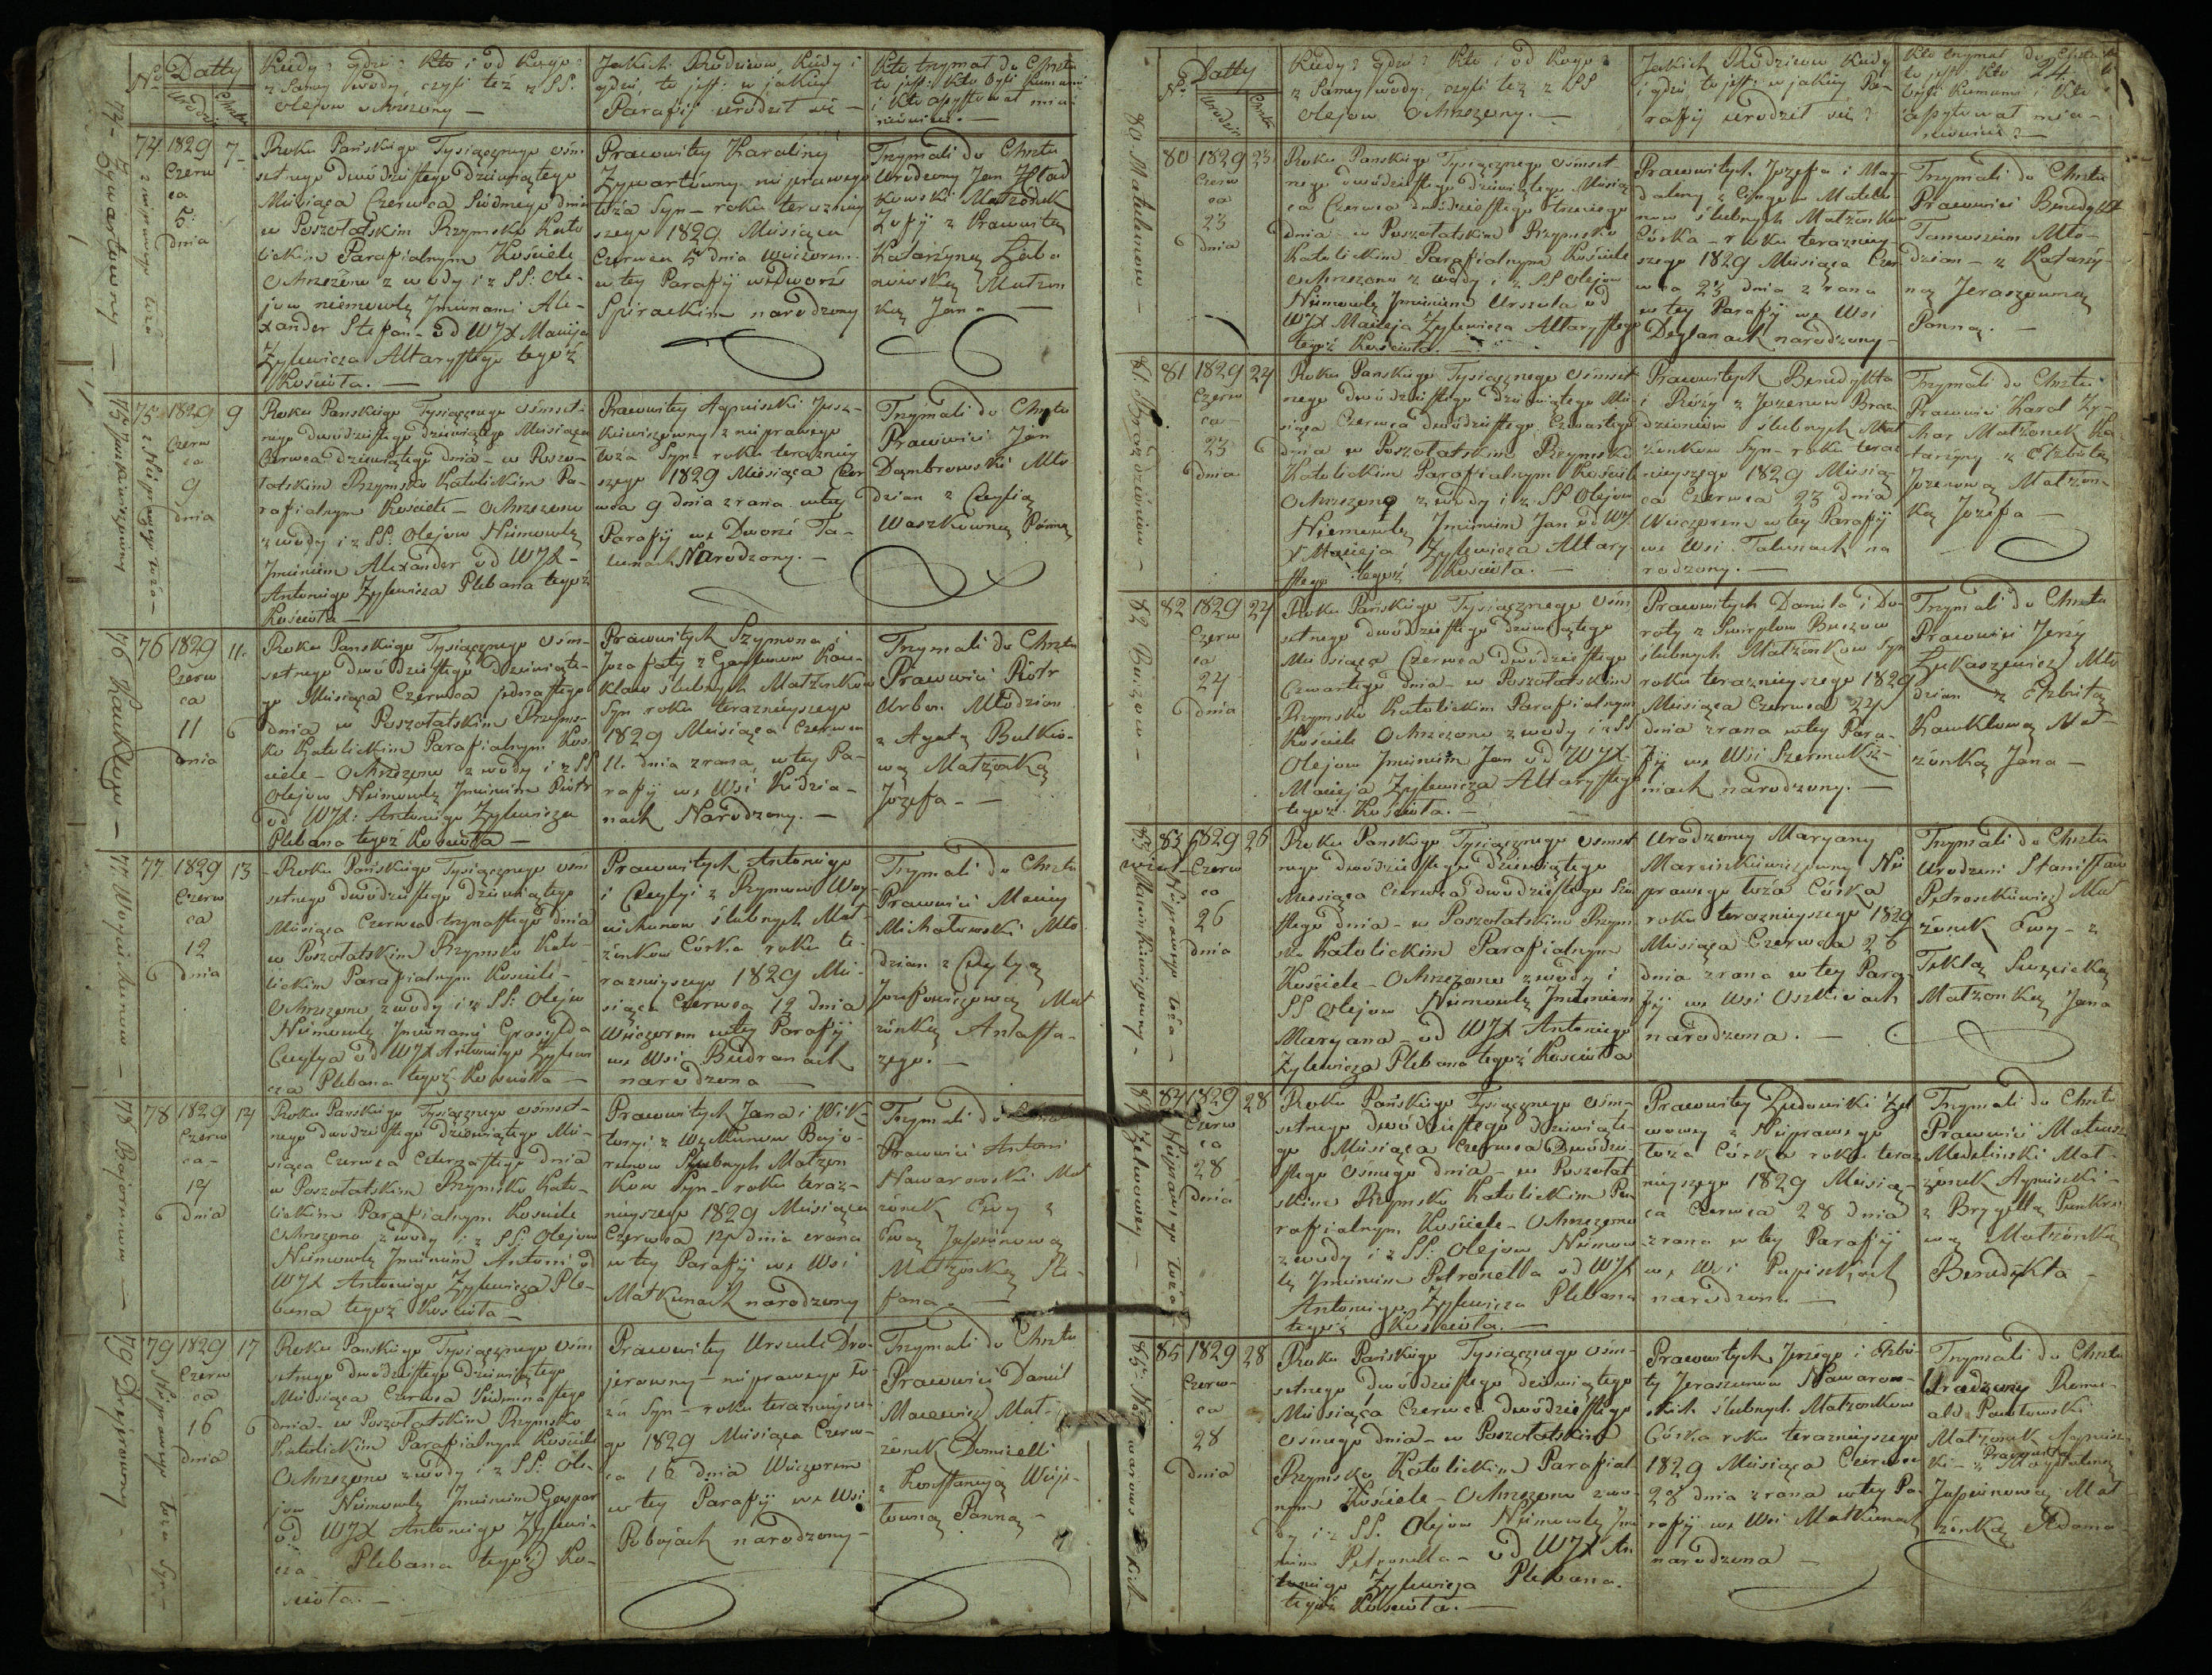 No
Datty
Urodzin
Chrztu
Kiedy? gdzie? Kto i od Kogo?
z Samey wody, czyli też z SS.
Olejow ochrzczony —
Jakich Rodziców, Kiedy i
gdzie, to jest: w jakiey
Parafij urodził się —
Kto trzymał do Chrztu
to jest: kto byli Kumami
i Kto assystował mia-
nowicie. —
74 Żywartowny —
z nieprawego łoża
74
1829
Czerw
ca
5
dnia
7
Roku Pańskiego Tysiącznego ośm-
setnego dwódziestego dziewiątego
Miesiąca Czerwca Siódmego dnia
w Poszołatskim Rzymsko Kato
lickim Parafialnym Kościele
Ochrzczono z wody i z SS: Ole-
jow niemowlę Jmionami Ale-
xander Stefan — od WJX Macieja
Żylewicza Altarystego tegoż
Kościoła. —
Prawowitey Karoliny
Żywartówny nieprawego
łoża Syn — roku teraźniey
szego 1829 Miesiąca
Czerwca 5 dnia Wieczorem
w tey Parafij w Dworze
Spirackim narodzony
Trzymali do Chrztu
Urodzony Jan
Małżonek
Zofij z Prawowitą
Katarzyną
Małżon
ką Jana —
75 Juszkiewiczowny
z Nieprawego łoża —
75
1829
Czerw
ca
9
dnia
9
Roku Pańskiego Tysiącznego ośmset-
nego dwódziestego dziewiątego Miesiąca
Czerwca dziewiątego dnia — w Poszo-
łatskim Rzymsko Katolickim Pa-
rafialnym Kościele — Ochrzczono
z wody i z SS: Olejow Niemowlę
Jmieniem Alexander od WJX —
Antoniego Żylewicza Plebana tegoż
Kościoła —
Prawowitey Agnieszki Jusz-
kiewiczówny z nieprawego
łoża Syn — roku teraźniey
szego 1829 Miesiąca Czer
wca 9 dnia z rana w tey
Parafij we Dworze Ta-
lunach Narodzony. —
Trzymali do Chrztu
Prawowici Jan
Dąmbrowski Mło
dzian z Cecylią
Waszkowną Panną
76 Kauklow —
76
1829
Czerw
ca
11
dnia
11.
Roku Pańskiego Tysiącznego ośm-
setnego dwódziestego Dziewiąte-
go Miesiąca Czerwca jednastego
dnia w Poszołatskim Rzyms-
ko Katolickim Parafialnym Koś-
ciele — Ochrzczono z wody i z SS
Olejow Niemowlę Jmieniem Piotr
od WJX: Antoniego Żylewicza
Plebana tegoż Kościoła —
Prawowitych Szymona i
Jozafaty z Kau-
klow ślubnych Małżonkow
Syn roku teraznieyszego
1829 Miesiąca Czerwca
11. dnia z rana, w tey Pa-
rafij we Wsi Kidzia-
nach Narodzony. —
Trzymali do Chrztu
Prawowici Piotr
Urbon Młodzian
z Agatą Butkie-
wą Małżonką
Jozefa — —
77
77
1829
Czerw
ca
12
dnia
13
Roku Pańskiego Tysiącznego ośm
setnego dwódziestego dziewiątego
Miesiąca Czerwca trzynastego dnia
w Poszołatskim Rzymsko Kato-
lickim Parafialnym Kościele —
Ochrzczono z wody i z SS: Olejow
Niemowlę Jmionami Grasylda
Cecylya od WJX Antoniego Żylewi
cza Plebana tegoż Kościoła —
Prawowitych Antoniego
i Cecylyi z Rzymow Woy
ciechunow ślubnych Mał-
żonkow Córka roku te-
raznieyszego 1829 Mie-
siąca Czerwca 12 dnia
Wieczorem w tey Parafij
we Wsi Budranach
narodzona —
Trzymali do Chrztu
Prawowici Maciey
Michałowski Mło
dzian z Cecylyą
Juzefowiczową Mał
żonką Antasta-
zego. —
78 Bajorunow —
78
1829
Czerw
ca —
14
dnia
14
Roku Pańskiego Tysiącznego ośmset-
nego dwódziestego dziewiątego Mie-
siąca Czerwca Czternastego dnia
w Poszołatskim Rzymsko Kato-
lickim Parafialnym Kościele
Ochrzczono z wody i z SS: Olejow
Niemowlę Jmieniem Antoni od
WJX Antoniego Żylewicza Ple-
bana tegoż Kościoła —
Prawowitych Jana i Wik-
toryi z Bajo-
runow Ślubnych Małżon
kow Syn — roku teraz-
nieyszego 1829 Miesiąca
Czerwca 14 dnia z rana
w tey Parafij we Wsi
Matkunach narodzony
Trzymali do Chrztu
Prawowici Antoni
Nawarowski Mał
żonek Ewy z
Ewą Jasiunową
Małżonką Ste-
fana. —
79 Drejerowny —
Nieprawego łoża Syn —
79
1829
Czerw
ca
16
dnia
17
Roku Pańskiego Tysiącznego ośm
setnego dwódziestego dziewiątego
Miesiąca Czerwca Siedmnastego
dnia — w Poszołatskim Rzymsko
Katolickim Parafialnym Kościele
Ochrzczono z wody i z SS: Ole-
jow Niemowlę Jmieniem Gaspar
od WJX Antoniego Żylewi-
cza Plebana tegoż Ko-
ścioła. —
Prawowitey Urszuli Dre-
jerowny — nieprawego ło-
ża Syn — roku teraznieysze-
go 1829 Miesiąca Czerw-
ca 16 dnia Wieczorem
w tey Parafij we Wsi
Pobojach narodzony —
Trzymali do Chrztu
Prawowici Daniel
Macewicz Mał-
żonek Domicelli
z Konstancyją Woje-
towną Panną —
No
Datty
Urodzin
Chrztu
Kiedy? gdzie? Kto i od Kogo?
z Samey wody, czyli też z SS
Olejow Ochrzczony. —
Jakich Rodzicow Kiedy
i gdzie to jest: w jakiey Pa-
rafij urodził się?
Kto trzymał do Chrztu
to jest: Kto
byli Kumami i Kto
assystował mia-
nowicie? —
24
80 Matulunow —
80
1829
Czerw
ca
23
dnia
23
Roku Pańskiego Tysiącznego ośmset
nego dwódziestego dziewiątego Miesią
ca Czerwca dwódziestego trzeciego
dnia — w Poszołatskim Rzymsko
Katolickim Parafialnym Kościele
Ochrzczono z wody i z SS Olejow
Niemowlę Jmieniem Urszula od
WJX Macieja Żylewicza Altarystego
tegoż Kościoła. —
Prawowitych Jozefa i Mag
daleny z Matulu
now ślubnych Małżonkow
Córka — roku teraźniey
szego 1829 Miesiąca Czer
wca 23 dnia z rana
w tey Parafij we Wsi
Deglanach narodzony —
Trzymali do Chrztu
Prawowici Benedykt
Tamoszun Mło-
dzian — z Katarzy-
ną Jeraszowną
Panną. —
81. Brazdziuniow —
81
1829
Czerw
ca —
23
dnia
24
Roku Pańskiego Tysiącznego ośmset
nego dwódziestego dziewiątego Mie
siąca Czerwca dwódziestego Czwartego
dnia w Poszołatskim Rzymsko
Katolickim Parafialnym Kościele
Ochrzczono z wody i z SS Olejow
Niemowlę Jmieniem Jan od WJ
X Macieja Żylewicza Altary-
stego tegoż Kościoła. —
Prawowitych Benedykta
i Róży z Jozenow Braz
dziuniow ślubnych Mał
żonkow Syn — roku teraz
nieyszego 1829 Miesią
ca Czerwca 23 dnia
Wieczorem w tey Parafij
we Wsi Talunach na
rodzony. —
Trzymali do Chrztu
Prawowici Karol Ży-
har Małżonek Ka-
tarzyny z Elżbietą
Jozenową Małżon-
ką Jozefa —
82 Buczow —
82
1829
Czerw
ca
24
dnia
24
Roku Pańskiego Tysiącznego ośm
setnego dwódziestego dziewiątego
Miesiąca Czerwca dwódziestego
Czwartego dnia — w Poszołatskim
Rzymsko Katolickim Parafialnym
Kościele Ochrzczono z wody i z SS
Olejow Jmieniem Jan od WJX
Macieja Żylewicza Altarystego
tegoż Kościoła. —
Prawowitych Daniela i Do-
roty z Buczow
ślubnych Małżonkow Syn
roku teraznieyszego 1829
Miesiąca Czerwca 24
dnia z rana w tey Para-
fij we Wsi Szermuksz-
niach narodzony. —
Trzymali do Chrztu
Prawowici Jerzy
Łukaszewicz Mło
dzian z Elżbietą
Kauklową Mał-
żonką Jana —
83 Marcinkiewiczowny —
Nieprawego łoża —
83
1829
Czerw
ca
26
dnia
26
Roku Pańskiego Tysiącznego ośmset
nego dwódziestego dziewiątego
Miesiąca Czerwca dwódziestego Szó
stego dnia — w Poszołatskim Rzym
sko Katolickim Parafialnym
Kościele — Ochrzczono z wody i
SS Olejow Niemowlę Jmieniem
Maryana — od WJX Antoniego
Żylewicza Plebana tegoż Kościoła
Urodzoney Maryany
Marcinkiewiczowny Nie
prawego łoża Córka
roku teraznieyszego 1829
Miesiąca Czerwca 26
dnia z rana w tey Para-
fij we Wsi Oszkieiach
narodzona. —
Trzymali do Chrztu
Urodzeni Stanisław
Petraszkiewicz Mał
żonek Ewy — z
Teklą
Małżonką Jana
84 Żelwowey —
Nieprawego łoża —
84
1829
Czerw
ca
28
dnia
28
Roku Pańskiego Tysiącznego ośm-
setnego dwódziestego dziewiąte-
go Miesiąca Czerwca Dwódzie-
stego Osmego dnia — w Poszołat-
skim Rzymsko Katolickim Pa-
rafialnym Kościele — Ochrzczono
z wody i z SS: Olejow Niemow
lę Jmieniem Petronella od WJX
Antoniego Żylewicza Plebana
tegoż Kościoła. —
Prawowitey Ludowiki Żel
wowey z Nieprawego
łoża Córka roku teraz
nieyszego 1829 Miesią-
ca Czerwca 28 dnia
z rana w tey Parafij
we Wsi Papiszkach
narodzona —
Trzymali do Chrztu
Prawowici Mateusz
Medeliński Mał-
żonek Agnieszki —
z Brygittą Punkro
wą Małżonką
Benedykta —
85. Nawarowskich
85
1829
Czerw-
ca
28
dnia
28
Roku Pańskiego Tysiącznego ośm-
setnego dwódziestego dziewiątego
Miesiąca Czerwca dwódziestego
osmego dnia — w Poszołatskim
Rzymsko Katolickim Parafial-
nym Kościele — Ochrzczono z wo-
dy i z SS. Olejow Niemowlę Jmie
niem Petronella — od WJX An
toniego Żylewicza Plebana
tegoż Kościoła. —
Prawowitych Jerzego i Elżbie-
ty Jeraszunow Nawarow-
skich ślubnych Małżonkow
Córka roku teraznieyszego
1829 Miesiąca Czerwca
28 dnia z rana w tey Pa-
rafij we Wsi Matkunach
narodzona —
Trzymali do Chrztu
Urodzony Romu-
ald Pawłowski
Małżonek Agniesz-
ki — z Prawowitą Magdaleną
Jasiunową Mał
żonką Adama —